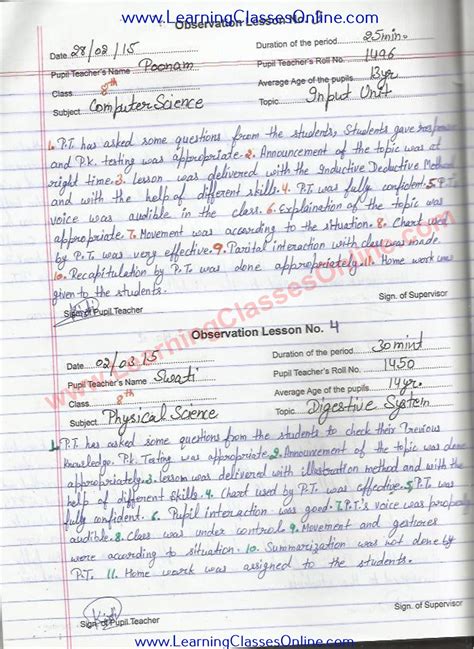 www.LearningClassesOnline.com
Observation Lesson No. 3
Date 28/02/15 Duration of the period 25min.
Pupil Teacher's Name Poonam Pupil Teacher's Roll No. 1496
Class 8th Average Age of the pupils 13yr
Subject Computer Science Topic Input Unit
1. P.T. has asked some questions from the students, Students gave response
and P.K. testing was appropriate. 2. Announcement of the topic was at
right time. 3. Lesson was delivered with the Inductive Deductive Method
and with the help of different skills. 4. P.T. was fully confident. 5. P.T.
voice was audible in the class. 6. Explaination of the topic was
appropriate. 7. Movement was according to the situation. 8. Chart used
by P.T. was very effective. 9. Parital interaction with class was made.
10. Recapitulation by P.T. was done appropriately. 11. Home work was
given to the students.
Sign of Pupil.Teacher Sign. of Supervisor
www.LearningClassesOnline.com
Observation Lesson No. 4
Date 02/03/15 Duration of the period 30mint
Pupil Teacher's Name Swati Pupil Teacher's Roll No. 1450
Class 8th Average Age of the pupils 14yr.
Subject Physical Science Topic Digestive System
1. P.T. has asked some questions from the students to check their Previous
knowledge. P.K. Testing was appropriate. 2. Announcement of the topic was done
appropriately. 3. Lesson was delivered with illustration method and with the
help of different skills. 4. Chart used by P.T. was effective. 5. P.T. was
fully confident. 6. Pupil interaction was good. 7. P.T's voice was properly
audible. 8. Class was under control. 9. Movement and gestures
were according to situation. 10. Summarization was not done by
P.T. 11. Home work was assigned to the students.
Sign of Pupil.Teacher Sign. of Supervisor
www.LearningClassesOnline.com